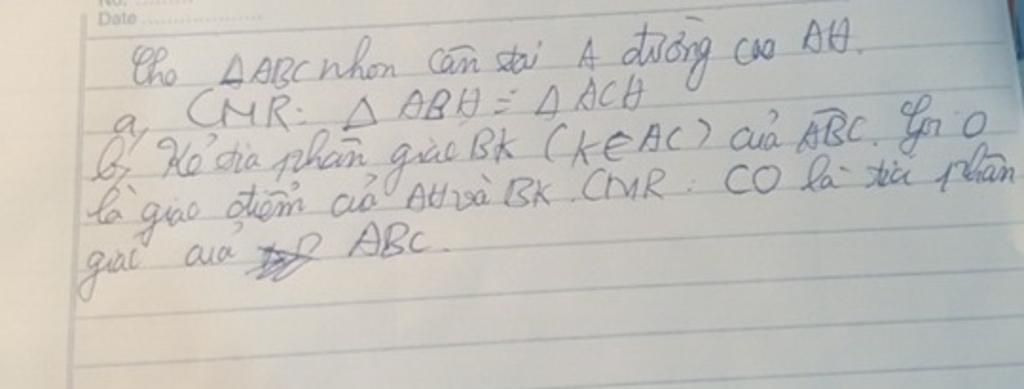 No.
Date
Cho ΔABC nhọn cân tại A đường cao AH.
a, CMR: Δ ABH = Δ ACH
b, Kẻ tia phân giác BK (K∈AC) của ABC. Gọi O
là giao điểm của AH và BK. CMR: CO là tia phân
giác của ABC.